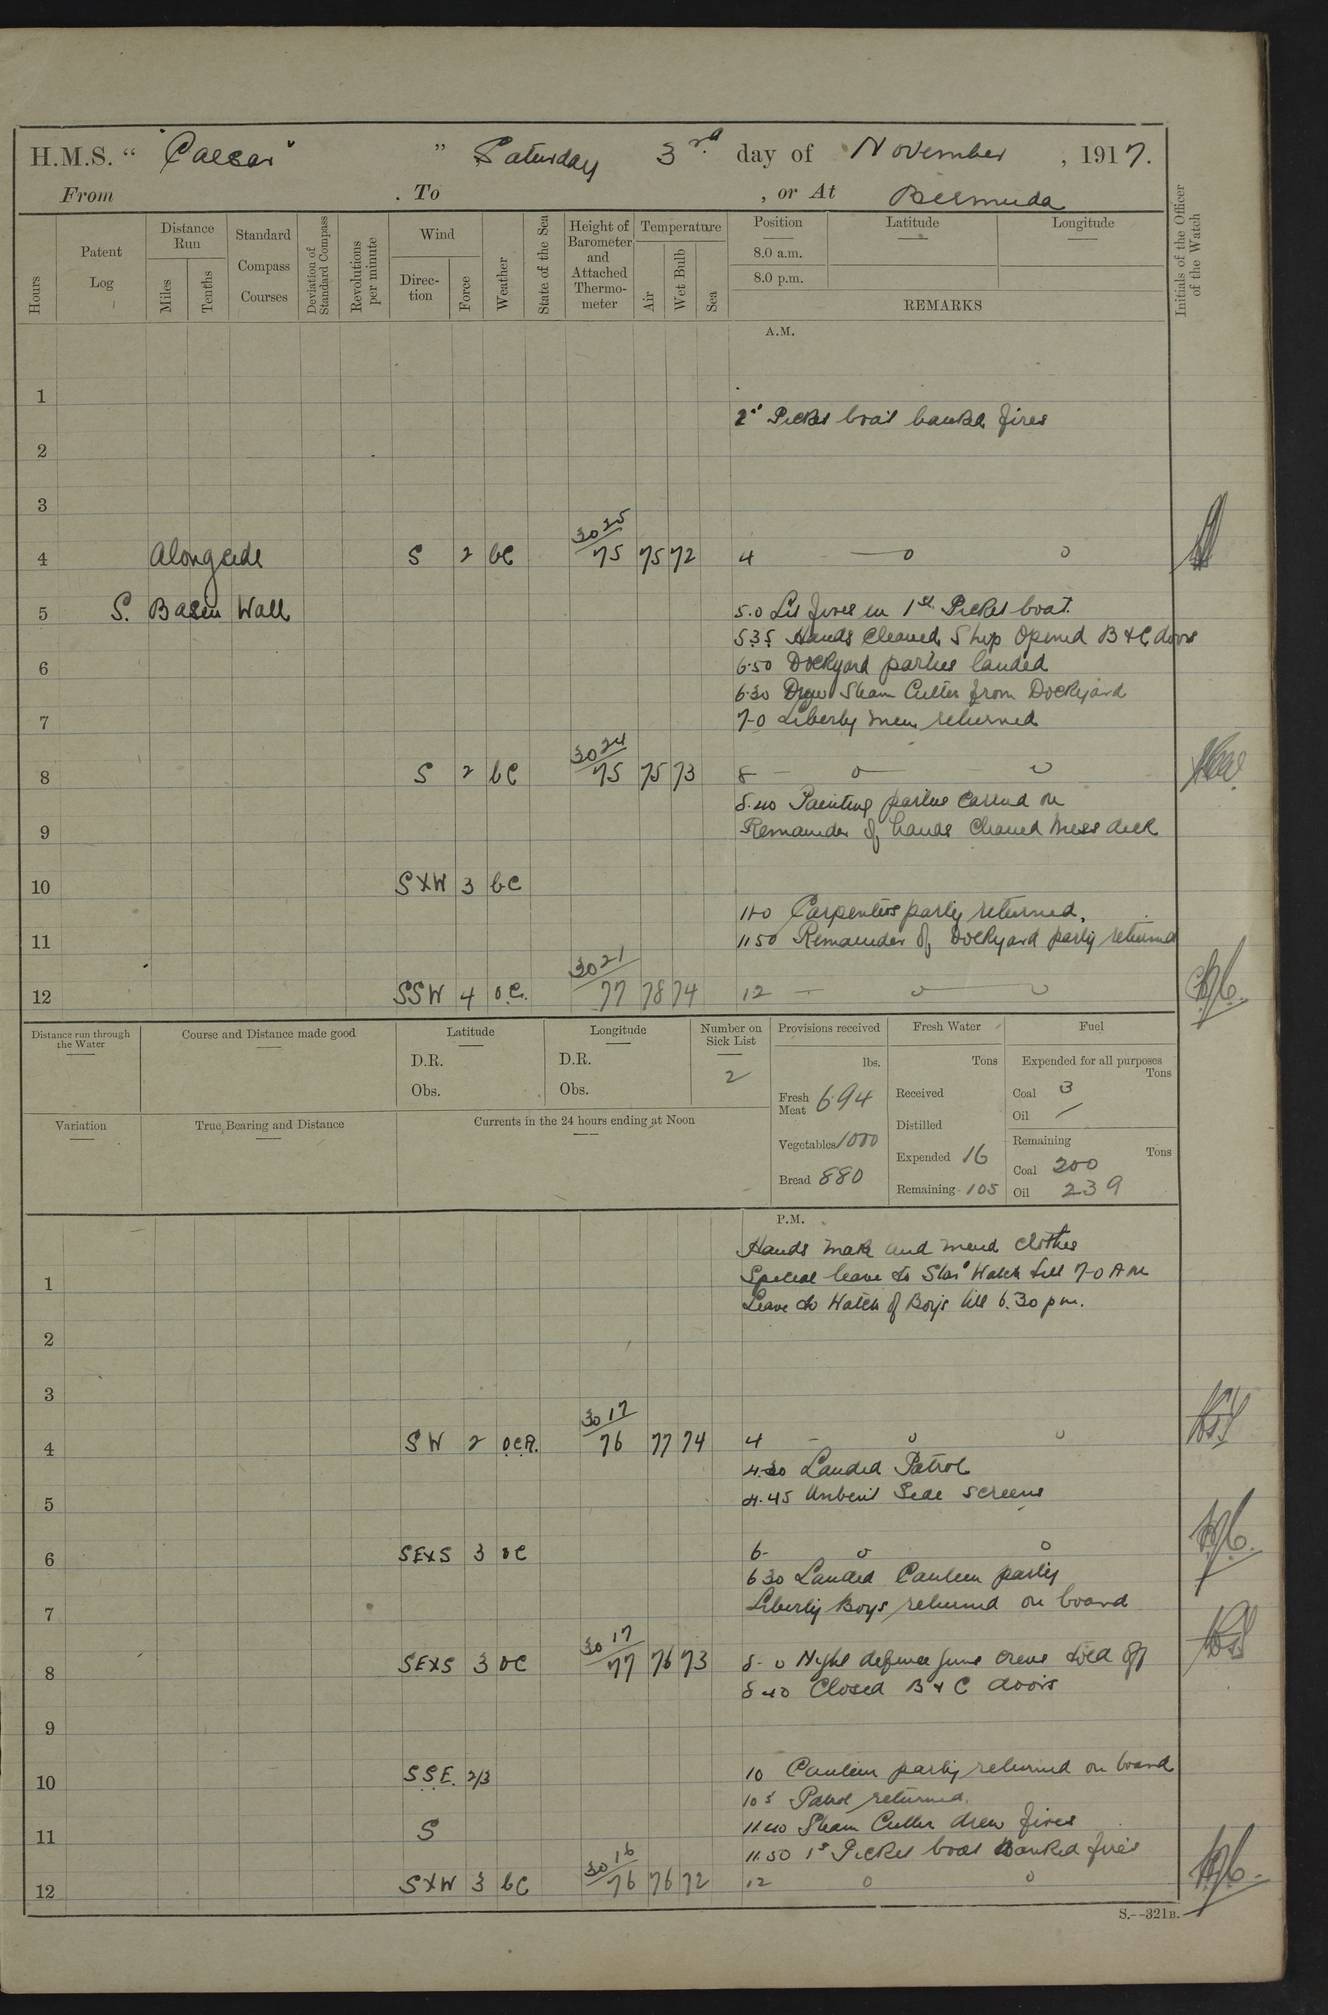 H.M.S. " "Caesar" " Saturday 3rd day of November , 1917.
From . To , or At Bermuda
Hours Patent Log Distance Run Miles Tenths Standard Compass Courses Deviation of Standard Compass Revolutions per minute Wind Direction Force Weather State of the Sea Height of Barometer and Attached Thermometer Temperature Air Wet Bulb Sea Position 8.0 a.m. 8.0 p.m. Latitude Longitude REMARKS Initials of the Officer of the Watch
A.M.
1
Picket boat banked fires
2
3
4 Alongside S 2 bc 30 25 75 75 72 4
5 S. Basin Wall 5.0 Lit fires in 1st Picket boat.
5.35 Hands Cleaned Ship Opened B & C doors
6 6.50 Dockyard parties landed
6.30 Steam Cutter from Dockyard
7 7-0 Liberty men returned
8 S 2 bc 30 24 75 75 73 8
8.40 Painting parties carried on
9 Remainder of hands cleaned mess deck
10 SXW 3 bc
11-0 Carpenters party returned.
11 11 50 Remainder of Dockyard party returned
12 SSW 4 o.c. 30 21 77 78 74 12
Distance run through the Water Course and Distance made good Latitude D.R. Obs. Longitude D.R. Obs. Number on Sick List 2
Variation True Bearing and Distance Currents in the 24 hours ending at Noon
Provisions received lbs. Fresh Meat 694 Vegetables 1000 Bread 880
Fresh Water Tons Received Distilled Expended 16 Remaining 105
Fuel Expended for all purposes Tons Coal 3 Oil / Remaining Tons Coal 200 Oil 239
P.M.
Hands make and mend clothes
1 Special leave to Star' Watch till 7-0 AM
Leave to Watch of Boys till 6.30 pm.
2
3
4 SW 2 o.c.R. 30 17 76 77 74 4
4.30 Landed Patrol
5 4.45 Unbent Side screens
6 SEXS 3 oc 6-
6 30 Landed Canteen party
7 Liberty Boys returned on board
8 SEXS 3 oc 30 17 77 76 73 8-0 Night defence guns crews told off
8 40 Closed B & C doors
9
10 S.S.E. 2/3 10 Canteen party returned on board
10 5 Patrol returned.
11 S 11.40 Steam Cutter drew fires
11.50 1st Picket boat Banked fires
12 SXW 3 bc 30 16 76 76 72 12
S.--321B.